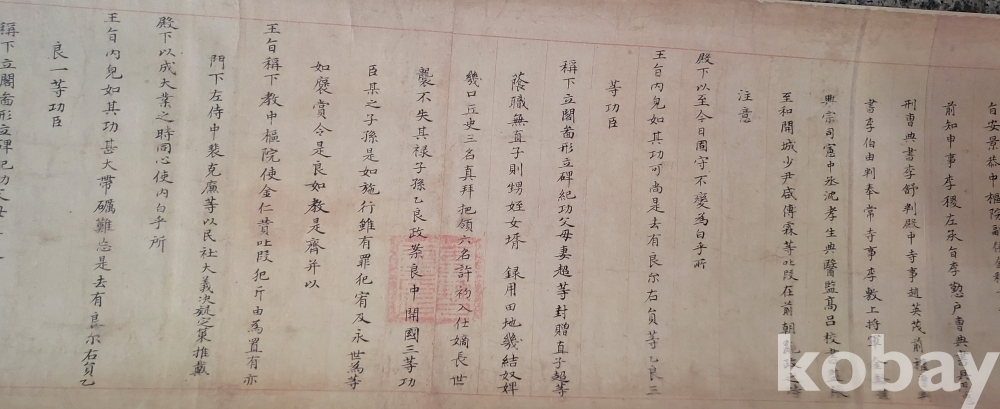 旨安景恭中樞院副使金
前知申事李稷左承旨李懃戶曹典書
刑曹典書李舒判殿中寺事趙英茂前
書李伯由判奉常寺事李敷上將軍金
典宗司憲中丞沈孝生典醫監高呂校書
至和開城少尹咸傅霖等叱段在前朝
注意
殿下以至今日固守不變爲白乎所
王旨內皃如其功可尚是去有良尔右員等乙良三
等功臣
稱下立閣啚形立碑紀功父母妻超等封贈直子超等
蔭職無直子則甥姪女壻 錄用田地幾結奴婢
幾口丘史三名真拜把領六名許初入仕嫡長世
襲不失其祿子孫乙良政案良中開國三等功
臣某之子孫是如施行雖有罪犯宥及永世爲等
如褒賞令是良如教是齊并以
王旨稱下教中樞院使金仁贊叱段犯斤由爲置有亦
門下左侍中裴克廉等以民社大義決疑定策推戴
殿下以成大業之時同心使內白乎所
王旨內皃如其功甚大帶礪難忘是去有良尔右員乙
良一等功臣
稱下立閣啚形立碑紀功父母
kobay